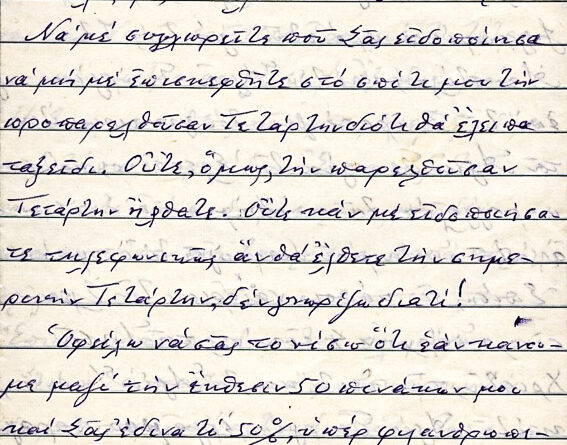 Νά μέ συγχωρεῖτε πού Σᾶς εἰδοποίησα
νά μή μέ ἐπισκεφθῆτε στό σπίτι μου τήν
προπαρελθοῦσαν Τετάρτην διότι θά ἔλειπα
ταξεῖδι. Οὔτε, ὅμως, τήν παρελθοῦσαν
Τετάρτην ἤλθατε. Οὔτε κάν μέ εἰδοποιήσα-
τε τηλεφωνικῶς ἄν θά ἔλθετε τήν σημε-
ρινήν Τετάρτην, δέν γνωρίζω διατί!
Ὀφείλω νά σᾶς τονίσω ὅτι ἐάν κάνου-
με μαζί τήν ἔκθεσιν 50 πινάκων μου
καί Σᾶς ἔδινα τό 50%, ὑπέρ φιλανθρωπι-